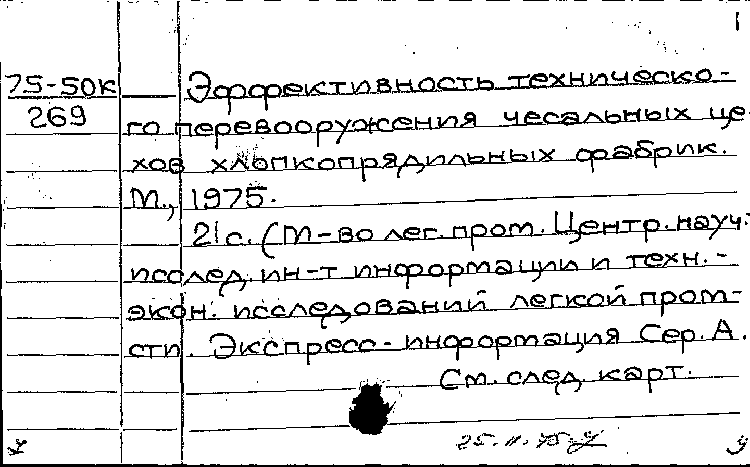 1
75-50к Эффективность техническо-
269 го перевооружения чесальных це
хов хлопкопрядильных фабрик.
М., 1975.
21с. (М-во лег. пром. Центр. науч.
исслед. ин-т информации и техн.-
экон. исследований легкой пром-
сти. Экспресс-информация Сер. А.
См. след. карт.